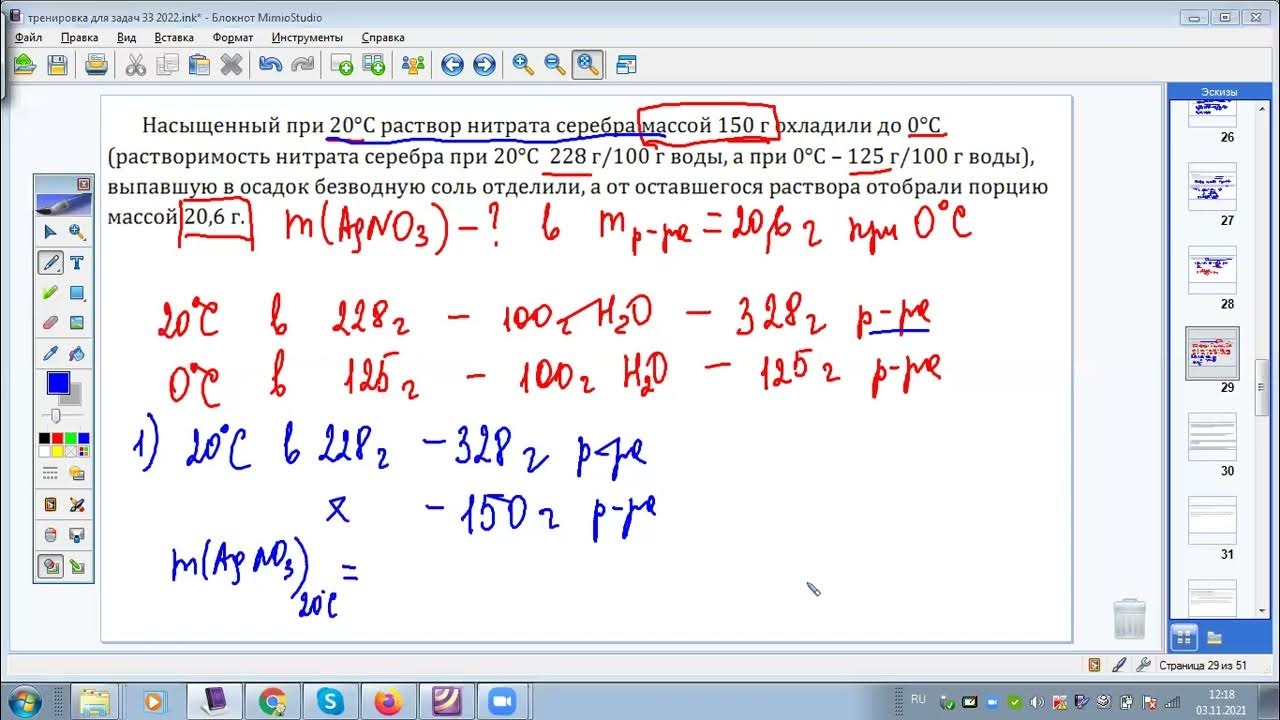 тренировка для задач 33 2022.ink* - Блокнот MimioStudio
Файл Правка Вид Вставка Формат Инструменты Справка
Эскизы
Насыщенный при 20°С раствор нитрата серебра массой 150 г охладили до 0°С
(растворимость нитрата серебра при 20°С 228 г/100 г воды, а при 0°С – 125 г/100 г воды),
выпавшую в осадок безводную соль отделили, а от оставшегося раствора отобрали порцию
массой 20,6 г.
m(AgNO3) – ? в m р-ра = 20,6 г при 0°C
20°C в 228 г – 100 г H2O – 328 г р-ра
0°C в 125 г – 100 г H2O – 125 г р-ра
1) 20°C в 228 г – 328 г р-ра
x – 150 г р-ра
m(AgNO3) 20°C =
26
27
28
29
30
31
Страница 29 из 51
RU
12:18
03.11.2021